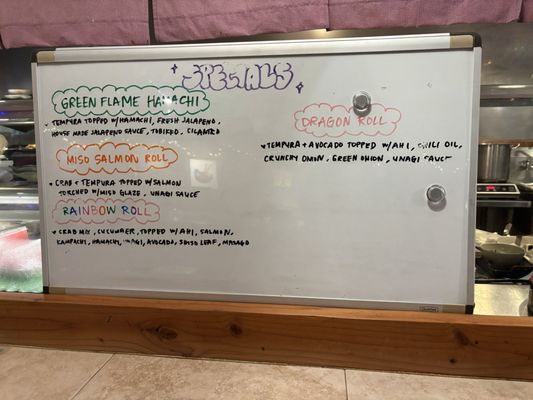 SPECIALS
GREEN FLAME HAMACHI
TEMPURA TOPPED W/HAMACHI, FRESH JALAPENO,
HOUSE MADE JALAPENO SAUCE, TOBIKO, CILANTRO
MISO SALMON ROLL
CRAB + TEMPURA TOPPED W/SALMON
TORCHED W/MISO GLAZE, UNAGI SAUCE
RAINBOW ROLL
CRAB MIX, CUCUMBER, TOPPED W/AHI, SALMON,
KAMPACHI, HAMACHI, UNAGI, AVOCADO, SHISO LEAF, MASAGO
DRAGON ROLL
TEMPURA + AVOCADO TOPPED W/AHI, CHILI OIL,
CRUNCHY ONION, GREEN ONION, UNAGI SAUCE